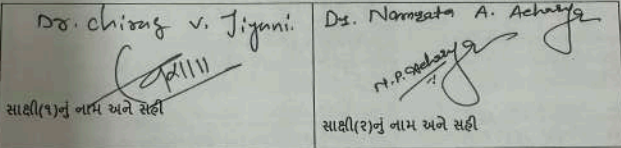 Dr. Chirag V. Jiyani.
સાક્ષી(૧)નું નામ અને સહી
Dr. Namrata A. Acharya
N.P. Acharya
સાક્ષી(૨)નું નામ અને સહી